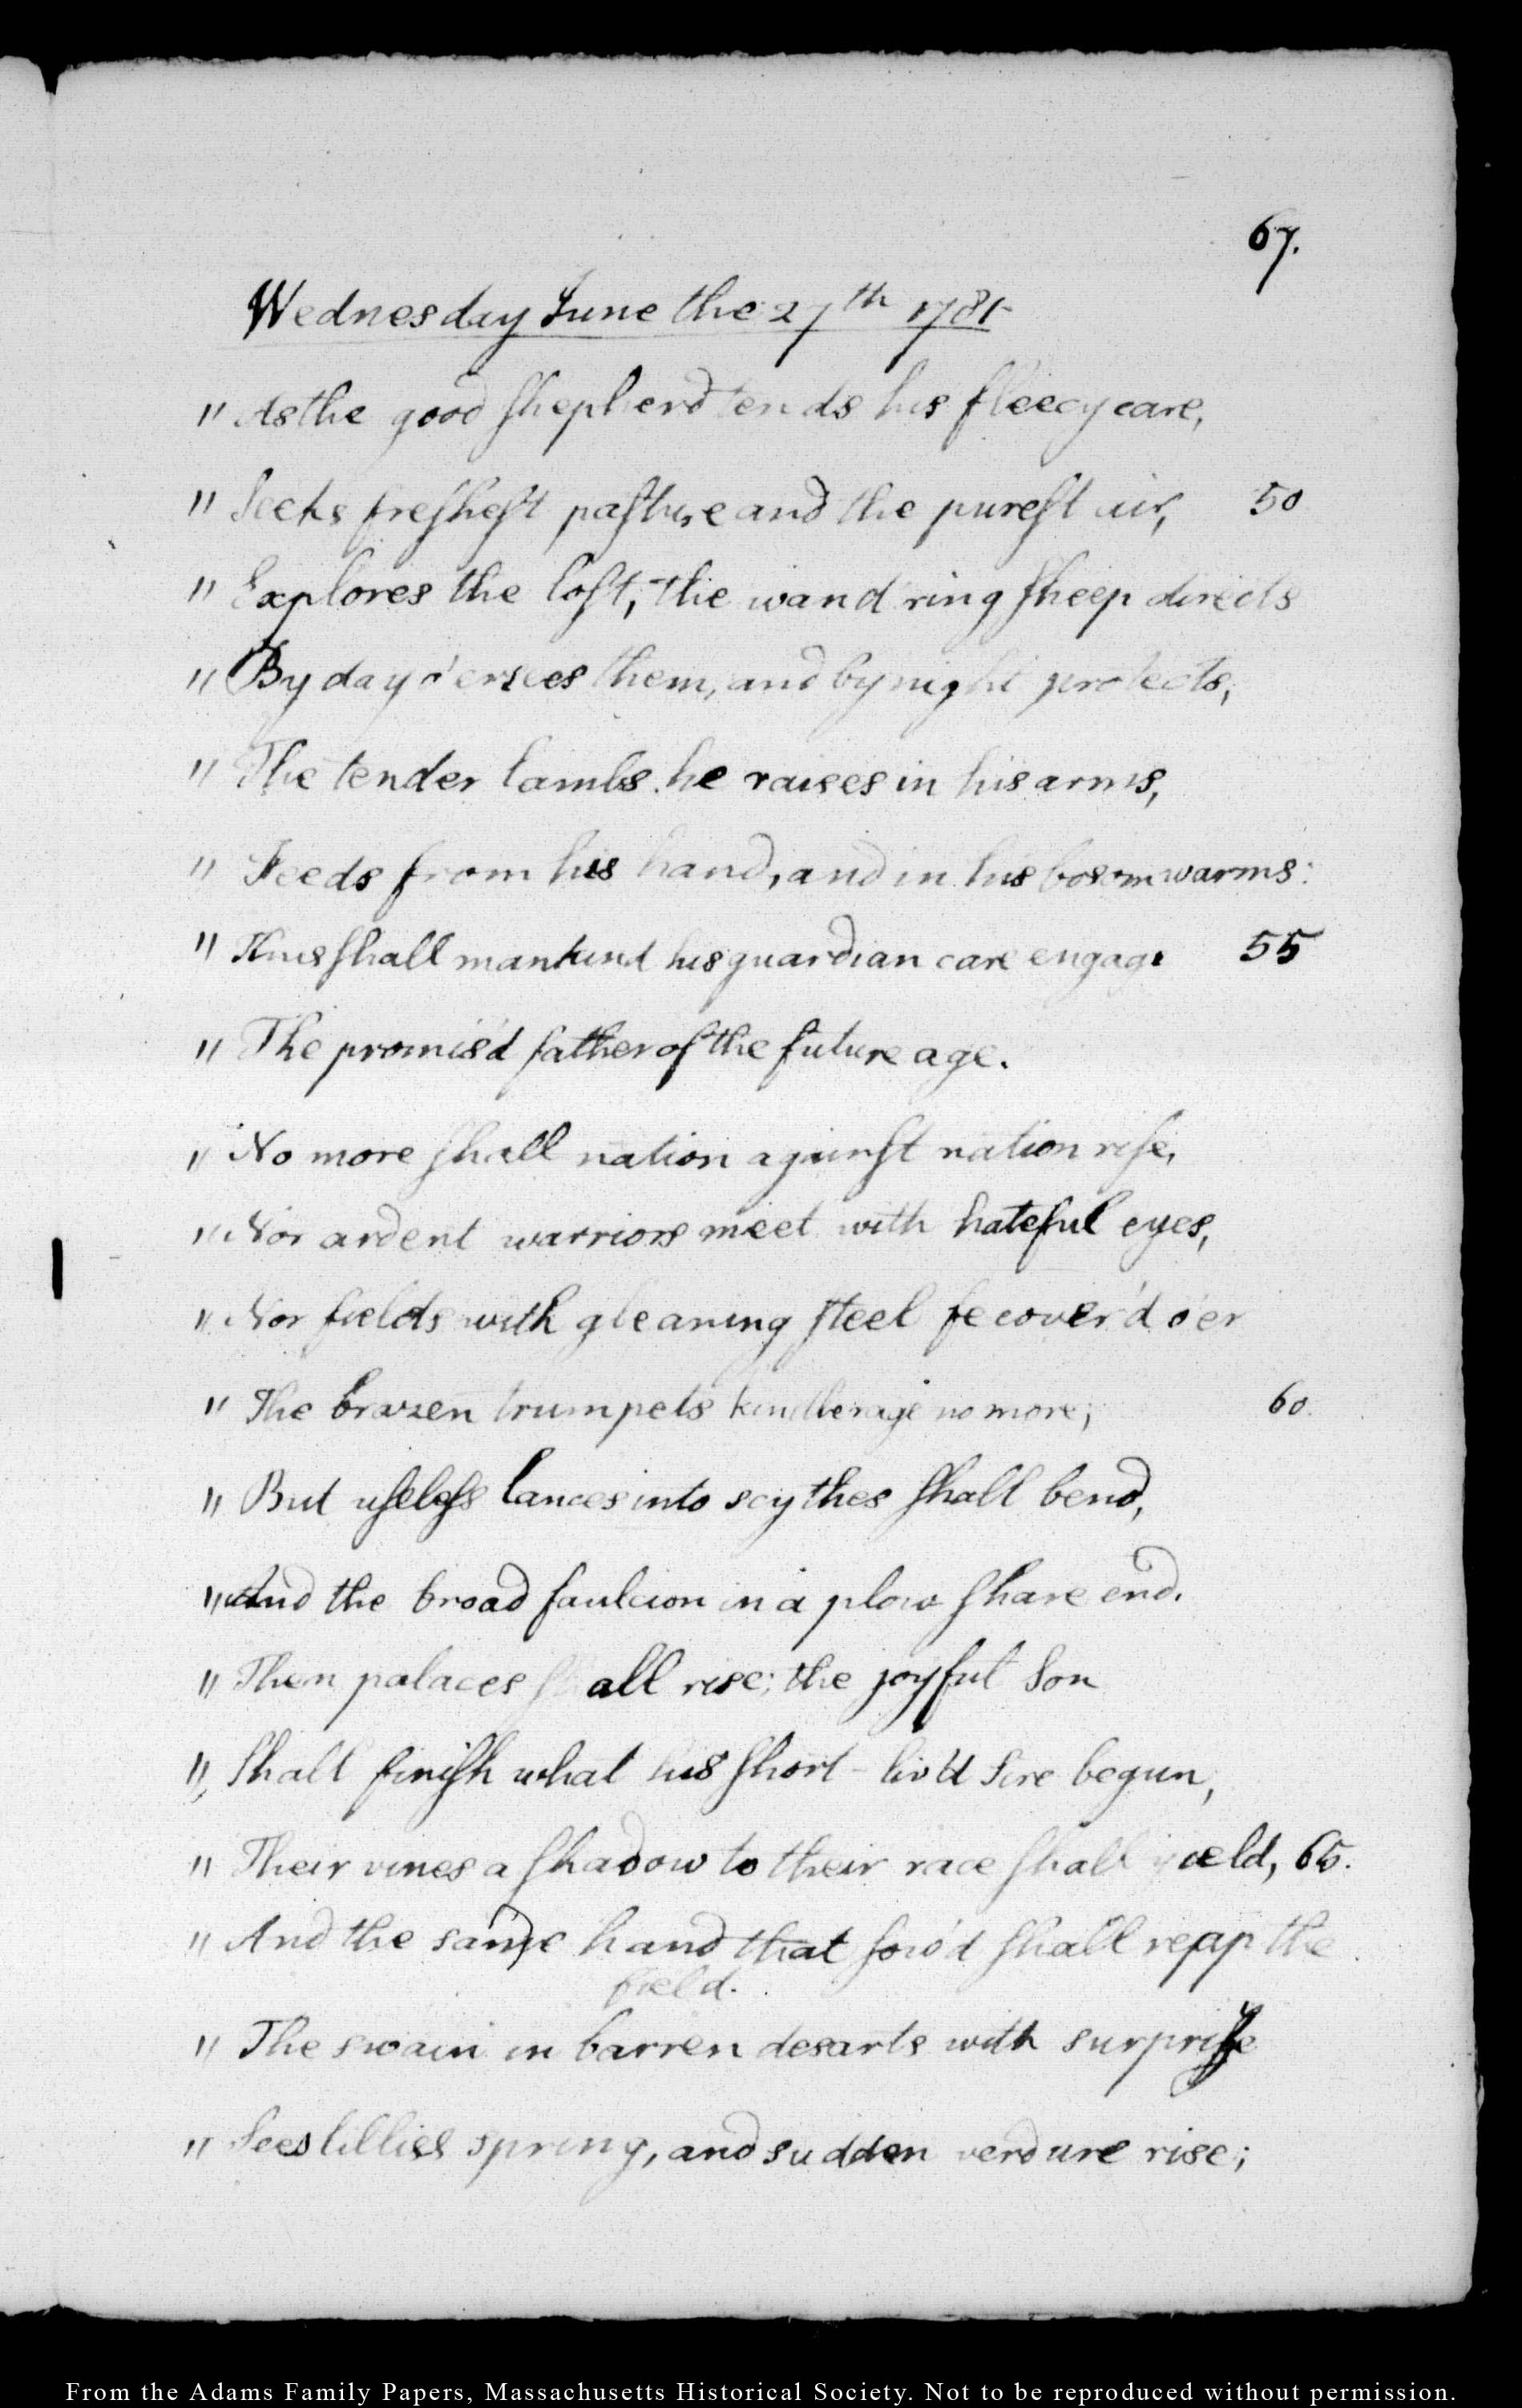 67.
Wednesday June the 27th 1781
" As the good shepherd tends his fleecy care,
" Seeks freshest pasture and the purest air, 50
" Explores the lost, the wand'ring sheep directs
" By day o'ersees them, and by night protects,
" The tender lambs he raises in his arms,
" Feeds from his hand, and in his bosom warms:
" Thus shall mankind his guardian care engage 55
" The promis'd father of the future age.
" No more shall nation against nation rise,
" Nor ardent warriors meet with hateful eyes,
" Nor fields with gleaning steel be cover'd o'er
" The brazen trumpets kindle rage no more; 60
" But useless lances into scythes shall bend,
" And the broad faulcion in a plow share end.
" Then palaces shall rise; the joyful Son
" Shall finish what his short-liv'd Sire begun,
" Their vines a shadow to their race shall yield, 65.
" And the same hand that sow'd shall reap the
field.
" The swain in barren desarts with surprise
" Sees lillies spring, and sudden verdure rise;
From the Adams Family Papers, Massachusetts Historical Society. Not to be reproduced without permission.